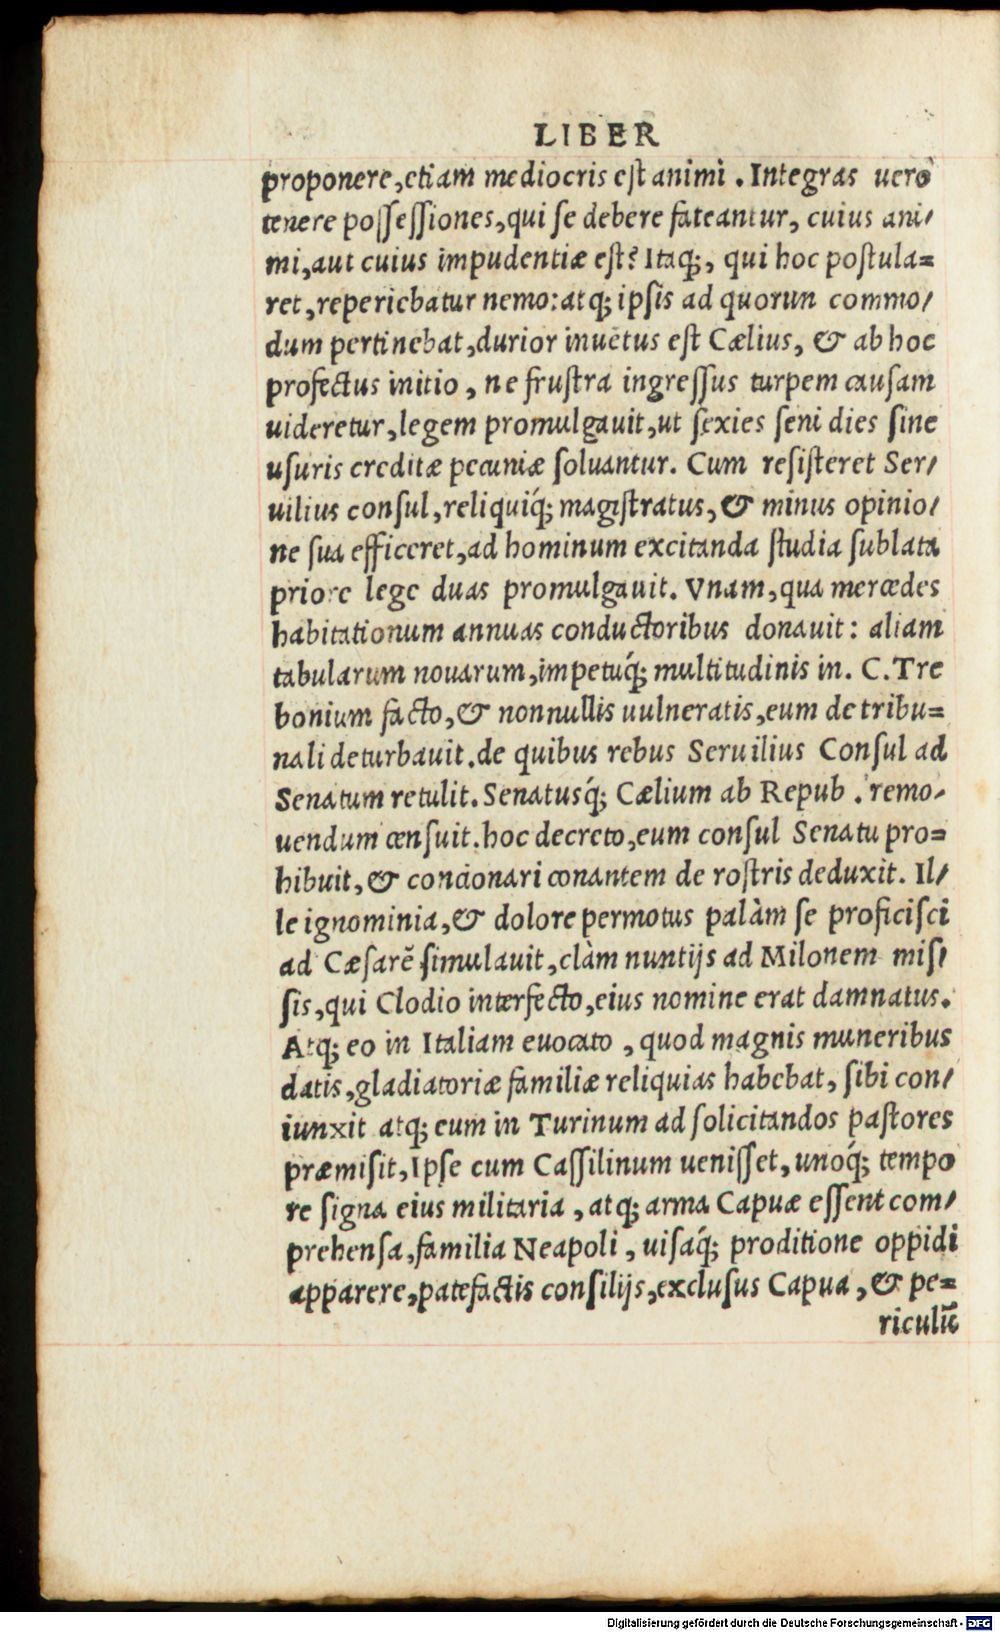 LIBER
proponere,etiam mediocris est animi . Integras uerò
tenere possessiones,qui se debere fateantur, cuius ani/
mi,aut cuius impudentiæ est? Itaq;, qui hoc postula=
ret,reperiebatur nemo:atq; ipsis ad quorun commo/
dum pertinebat,durior inuẽtus est Cælius, & ab hoc
profectus initio , ne frustra ingressus turpem causam
uideretur,legem promulgauit,ut sexies seni dies sine
usuris creditæ pecuniæ soluantur. Cum resisteret Ser/
uilius consul,reliquiq́; magistratus,& minus opinio/
ne sua efficeret,ad hominum excitanda studia sublata
priore lege duas promulgauit. Vnam,qua mercedes
habitationum annuas conductoribus donauit: aliam
tabularum nouarum,impetuq́; multitudinis in. C.Tre
bonium facto,& nonnullis uulneratis,eum de tribu=
nali deturbauit.de quibus rebus Seruilius Consul ad
Senatum retulit. Senatusq́; Cælium ab Repub . remo/
uendum censuit.hoc decreto,eum consul Senatu pro=
hibuit,& concionari conantem de rostris deduxit. Il/
le ignominia,& dolore permotus palàm se proficisci
ad Cæsarẽ simulauit,clàm nuntijs ad Milonem mis/
sis,qui Clodio interfecto,eius nomine erat damnatus.
Atq; eo in Italiam euocato , quod magnis muneribus
datis,gladiatoriæ familiæ reliquias habebat, sibi con/
iunxit atq; eum in Turinum ad solicitandos pastores
præmisit,Ipse cum Cassilinum uenisset,unoq́; tempo
re signa eius militaria , atq; arma Capuæ essent com/
prehensa,familia Neapoli , uisaq́; proditione oppidi
apparere,patefactis consilijs,exclusus Capua , & pe=
riculũ
Digitalisierung gefördert durch die Deutsche Forschungsgemeinschaft - DFG